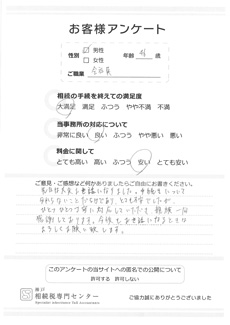 お客様アンケート
性別 ☑ 男性 年齢 歳
□ 女性
ご職業 会社員
相続の手続を終えての満足度
大満足 満足 ふつう やや不満 不満
当事務所の対応について
非常に良い 良い ふつう やや悪い 悪い
料金に関して
とても高い 高い ふつう 安い とても安い
ご意見・ご感想など何かありましたらご自由にお書きください。
わからないことだらけで
ひとつひとつ丁寧に対応していただき
感謝しております。
よろしくお願い致します。
このアンケートの当サイトへの匿名での公開について
許可する 許可しない
神戸
相続税専門センター
Specialty inheritance Tax Accountants
ご協力誠にありがとうございました